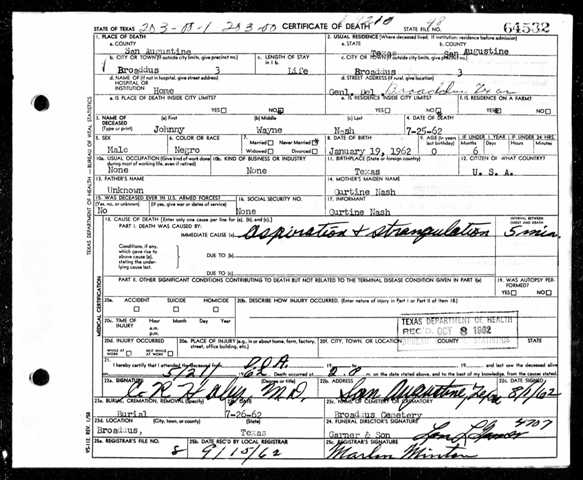 STATE OF TEXAS
CERTIFICATE OF DEATH
STATE FILE NO.
64532
1. PLACE OF DEATH
a. COUNTY
San Augustine
2. USUAL RESIDENCE (Where deceased lived. If institution: residence before admission)
a. STATE
Texas
b. COUNTY
San Augustine
b. CITY OR TOWN (If outside city limits, give precinct no.)
Broaddus 3
c. LENGTH OF STAY
Life
c. CITY OR TOWN (If outside city limits, give precinct no.)
Broaddus 3
d. NAME OF (If not in hospital, give street address)
HOSPITAL OR
INSTITUTION
Home
d. STREET ADDRESS (If rural, give location)
Genl. Del.
e. IS PLACE OF DEATH INSIDE CITY LIMITS?
YES NO
e. IS RESIDENCE INSIDE CITY LIMITS?
YES NO
f. IS RESIDENCE ON A FARM?
YES NO
3. NAME OF
DECEASED
(Type or print)
(a) First
Johnny
(b) Middle
Wayne
(c) Last
Nash
4. DATE OF DEATH
7-25-62
5. SEX
Male
6. COLOR OR RACE
Negro
7.
Married Never Married
Widowed Divorced
8. DATE OF BIRTH
January 19, 1962
9. AGE (In years
last birthday)
0
IF UNDER 1 YEAR
Months Days
6
IF UNDER 24 HRS.
Hours Min.
10a. USUAL OCCUPATION (Give kind of work done
during most of working life, even if retired)
None
10b. KIND OF BUSINESS OR INDUSTRY
None
11. BIRTHPLACE (State or foreign country)
Texas
12. CITIZEN OF WHAT COUNTRY?
U. S. A.
13. FATHER'S NAME
Unknown
14. MOTHER'S MAIDEN NAME
Curtine Nash
15. WAS DECEASED EVER IN U.S. ARMED FORCES?
(Yes, no, or unknown) (If yes, give war or dates of service)
No
16. SOCIAL SECURITY NO.
None
17. INFORMANT
Curtine Nash
18. CAUSE OF DEATH [Enter only one cause per line for (a), (b), and (c).]
PART I. DEATH WAS CAUSED BY:
IMMEDIATE CAUSE (a)
aspiration & strangulation
INTERVAL BETWEEN
ONSET AND DEATH
5 min.
Conditions, if any,
which gave rise to
above cause (a),
stating the under-
lying cause last.
DUE TO (b)
DUE TO (c)
PART II. OTHER SIGNIFICANT CONDITIONS CONTRIBUTING TO DEATH BUT NOT RELATED TO THE TERMINAL DISEASE CONDITION GIVEN IN PART I(a)
19. WAS AUTOPSY PER-
FORMED?
YES NO
20a.
ACCIDENT SUICIDE HOMICIDE
20b. DESCRIBE HOW INJURY OCCURRED. (Enter nature of injury in Part I or Part II of item 18.)
20c. TIME OF
INJURY
Hour Month Day Year
a.m.
p.m.
20d. INJURY OCCURRED
WHILE AT
WORK
NOT WHILE
AT WORK
20e. PLACE OF INJURY (e.g., in or about home, farm, factory,
street, office building, etc.)
20f. CITY, TOWN, OR LOCATION
COUNTY
STATE
TEXAS DEPARTMENT OF HEALTH
REC'D OCT 8 1962
21. I hereby certify that I attended the deceased
D.O.A.
Death occurred at
m. on the date stated above, and to the best of my knowledge, from the causes stated.
22a. SIGNATURE
(Degree or title)
M.D.
22b. ADDRESS
San Augustine, Texas
22c. DATE SIGNED
8/1/62
23a. BURIAL, CREMATION, REMOVAL (Specify)
Burial
23b. DATE
7-26-62
23c. NAME OF CEMETERY OR CREMATORY
Broaddus Cemetery
23d. LOCATION (City, town, or county) (State)
Broaddus, Texas
24. FUNERAL DIRECTOR'S SIGNATURE
Garner & Son
4707
25a. REGISTRAR'S FILE NO.
8
25b. DATE REC'D BY LOCAL REGISTRAR
9/15/62
25c. REGISTRAR'S SIGNATURE
Marlon Minton
TEXAS DEPARTMENT OF HEALTH — BUREAU OF VITAL STATISTICS
MEDICAL CERTIFICATION
VS-112 REV. 1/58